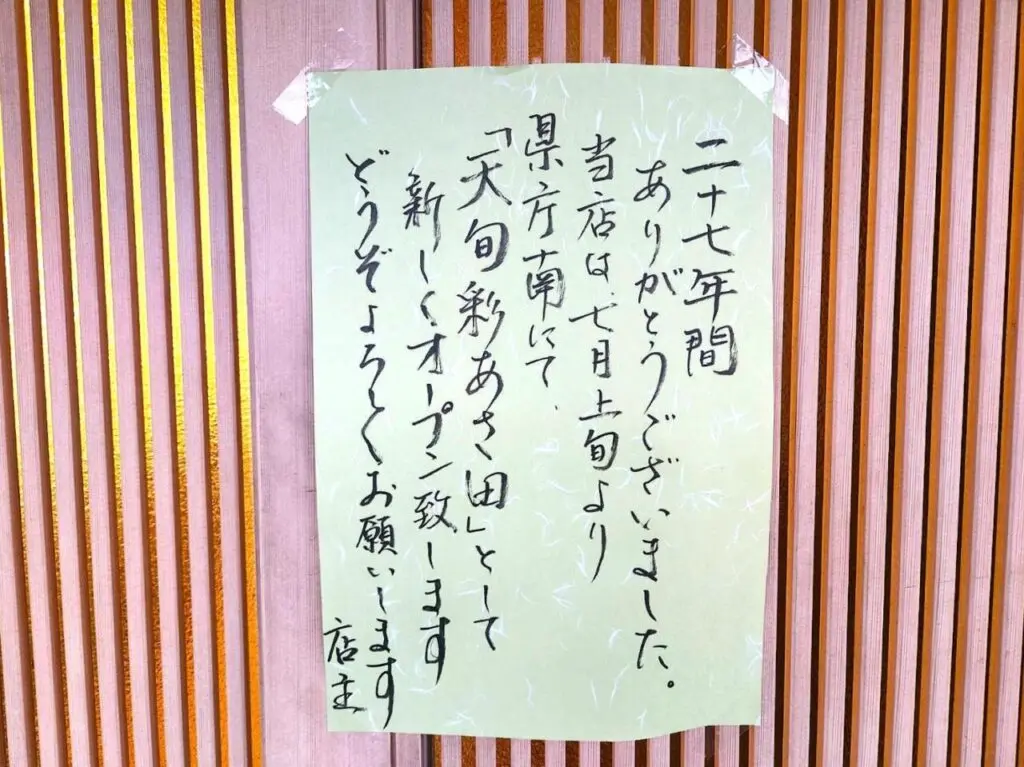 二十七年間
ありがとうございました。
当店は、七月上旬より
県庁南にて、
「天旬彩あさ田」として
新しくオープン致します
どうぞよろしくお願いします
店主